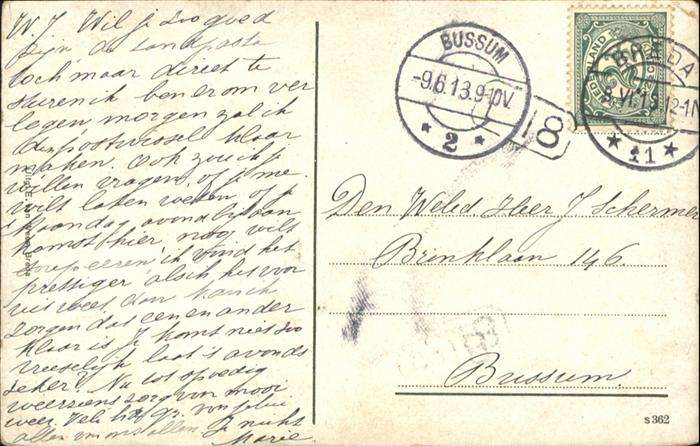 W J Wil je zoo goed
zijn de tandpasta
toch maar direct te
sturen ik ben er om ver
legen morgen zal ik
de postwissel klaar
maken. Ook zou ik je
willen vragen, of je me
wilt laten weten, of je
Maandag avond bij aan
komst hier, nog wilt
soupeeren, ik vind het
prettiger als ik het voor
uit weet, dan kan ik
zorgen dat een en ander
klaar is. Je komt niet zoo
vreeselijk laat 's avonds
zeker? Nu tot spoedig
weerziens zorg voor mooi
weer. Vele
allen van ons allen. Je nicht
Marie
BUSSUM
-9.6.13.9-10V
* 2 *
18
NEDERLAND
2½
BREDA
8.VI.13.12-1N
* 11 *
Den Weled Heer J Scherme
Brinklaan 146
Bussum.
s 362